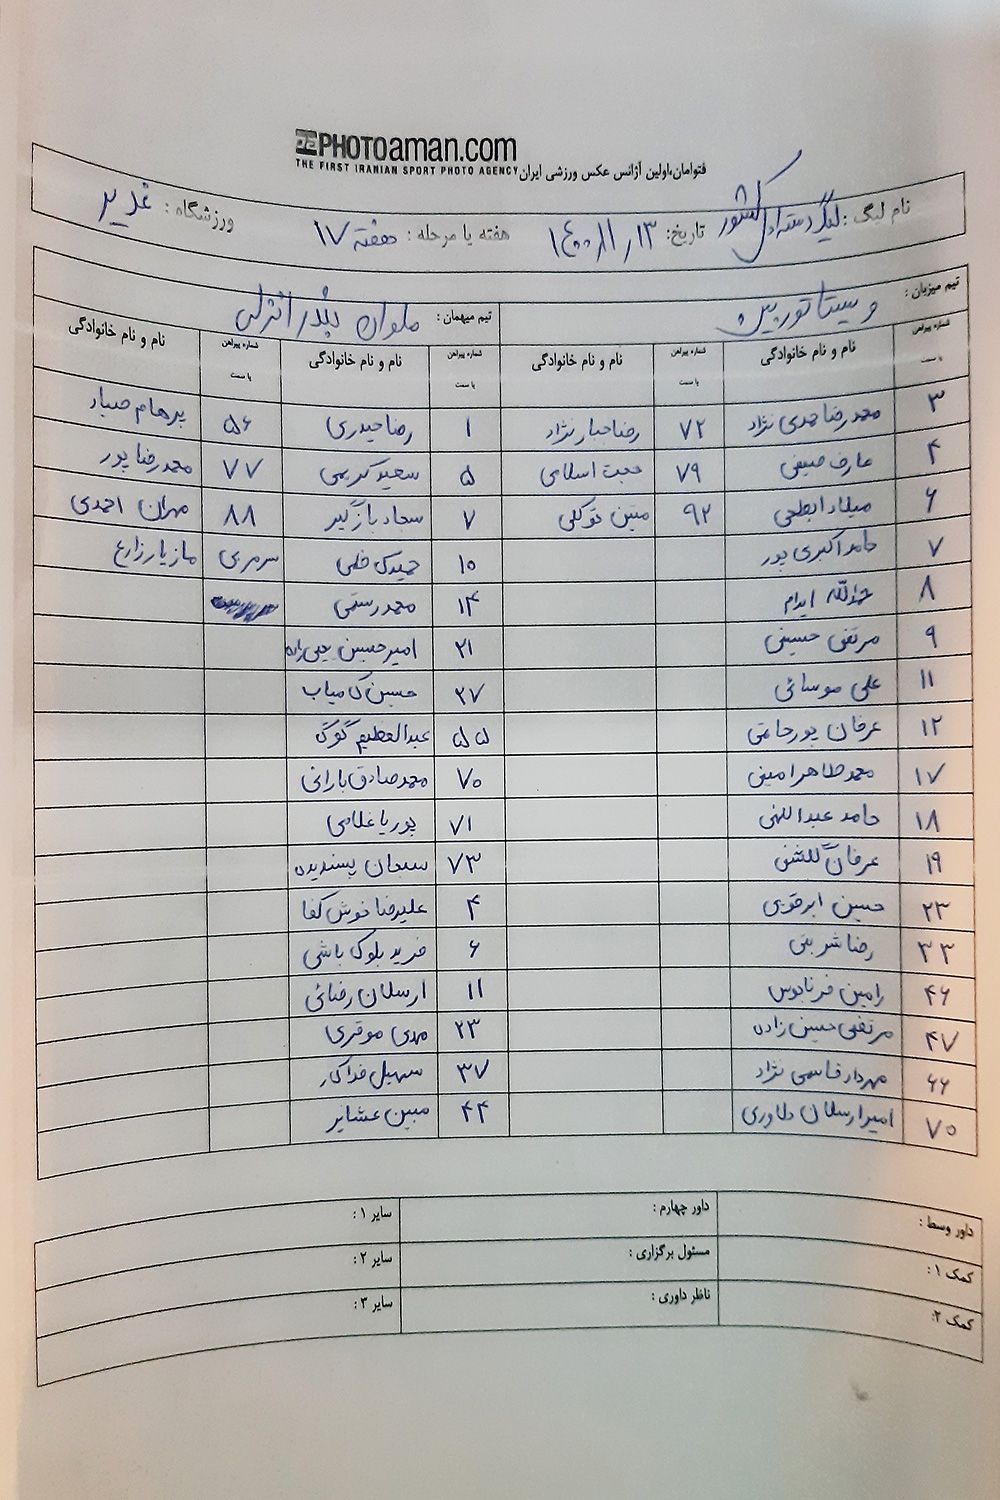 PHOTOaman.com
THE FIRST IRANIAN SPORT PHOTO AGENCY
فتوامان،اولین آژانس عکس ورزشی ایران
نام لیگ: لیگ دسته اول کشور تاریخ: ۱۴۰۰/۱۱/۱۳ هفته یا مرحله: هفته ۱۷ ورزشگاه: غدیر
تیم میزبان: ویستا توربین تیم میهمان: ملوان بندر انزلی
شماره پیراهن یا سمت نام و نام خانوادگی شماره پیراهن یا سمت نام و نام خانوادگی شماره پیراهن یا سمت نام و نام خانوادگی شماره پیراهن یا سمت نام و نام خانوادگی
۳ محمدرضا حمدی نژاد ۷۲ رضا جبار نژاد ۱ رضا حیدری ۵۶ پرهام صیاد
۴ عارف صیفی ۷۹ حجت اسلامی ۵ سعید کریمی ۷۷ محمد رضا پور
۶ میلاد ابطحی ۹۲ متین توکلی ۷ سجاد بازگیر ۸۸ مهران احمدی
۷ حامد اکبری پور ۱۰ سرمربی مازیار زارع
۸ ۱۴ محمد رستمی
۹ مرتضی حسینی ۲۱ امیرحسین یحیی زاده
۱۱ علی موسائی ۲۷ حسین کامیاب
۱۲ عرفان پورحاتمی ۵۵ عبدالعظیم گوک
۱۷ محمدطاهر امینی ۷۰ محمدصادق بارانی
۱۸ حامد عبداللهی ۷۱ پوریا غلامی
۱۹ عرفان گلشنی ۷۳ سبحان پسندیده
۲۳ حسین ابرقویی ۴ علیرضا خوش کفا
۳۳ رضا شربتی ۶ فرید بلوک باشی
۴۶ رامین ۱۱ ارسلان رضائی
۴۷ مرتضی حسین زاده ۲۳ مهدی موقری
۶۶ مهرداد قاسمی نژاد ۳۷ سهیل فداکار
۷۰ امیرارسلان دلاوری ۴۴ مبین عشایر
داور وسط: داور چهارم: سایر ۱:
کمک ۱: مسئول برگزاری: سایر ۲:
کمک ۲: ناظر داوری: سایر ۳: